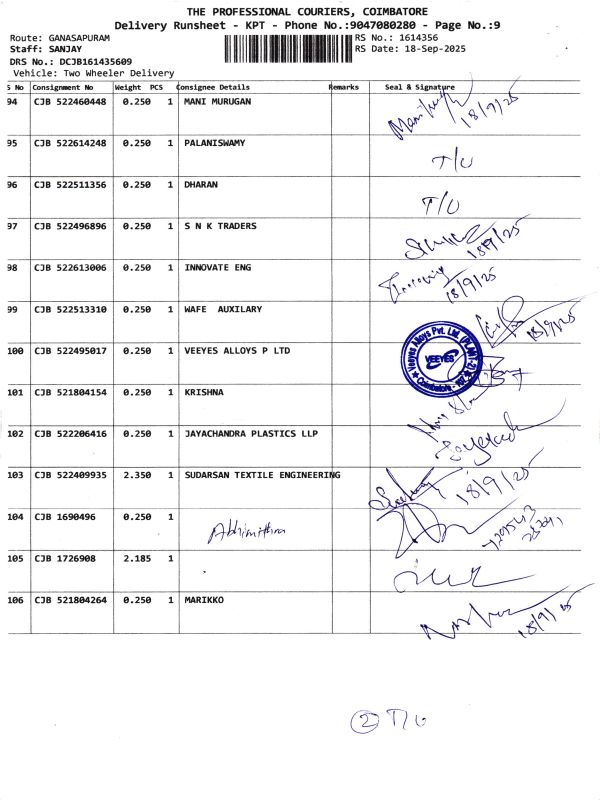 THE PROFESSIONAL COURIERS, COIMBATORE
Delivery Runsheet - KPT - Phone No.:9047080280 - Page No.:9
Route: GANASAPURAM RS No.: 1614356
Staff: SANJAY RS Date: 18-Sep-2025
DRS No.: DCJB161435609
Vehicle: Two Wheeler Delivery
S No Consignment No Weight PCS Consignee Details Remarks Seal & Signature
94 CJB 522460448 0.250 1 MANI MURUGAN 18/9/25
95 CJB 522614248 0.250 1 PALANISWAMY T/U
96 CJB 522511356 0.250 1 DHARAN T/U
97 CJB 522496896 0.250 1 S N K TRADERS 18/9/25
98 CJB 522613006 0.250 1 INNOVATE ENG 18/9/25
99 CJB 522513310 0.250 1 WAFE AUXILARY 18/9/25
100 CJB 522495017 0.250 1 VEEYES ALLOYS P LTD Veeyes Alloys Pvt. Ltd. VEEYES Coimbatore
101 CJB 521804154 0.250 1 KRISHNA
102 CJB 522206416 0.250 1 JAYACHANDRA PLASTICS LLP
103 CJB 522409935 2.350 1 SUDARSAN TEXTILE ENGINEERING 18/9/25
104 CJB 1690496 0.250 1 Abhimithra
105 CJB 1726908 2.185 1
106 CJB 521804264 0.250 1 MARIKKO 18/9/25
2 T/U